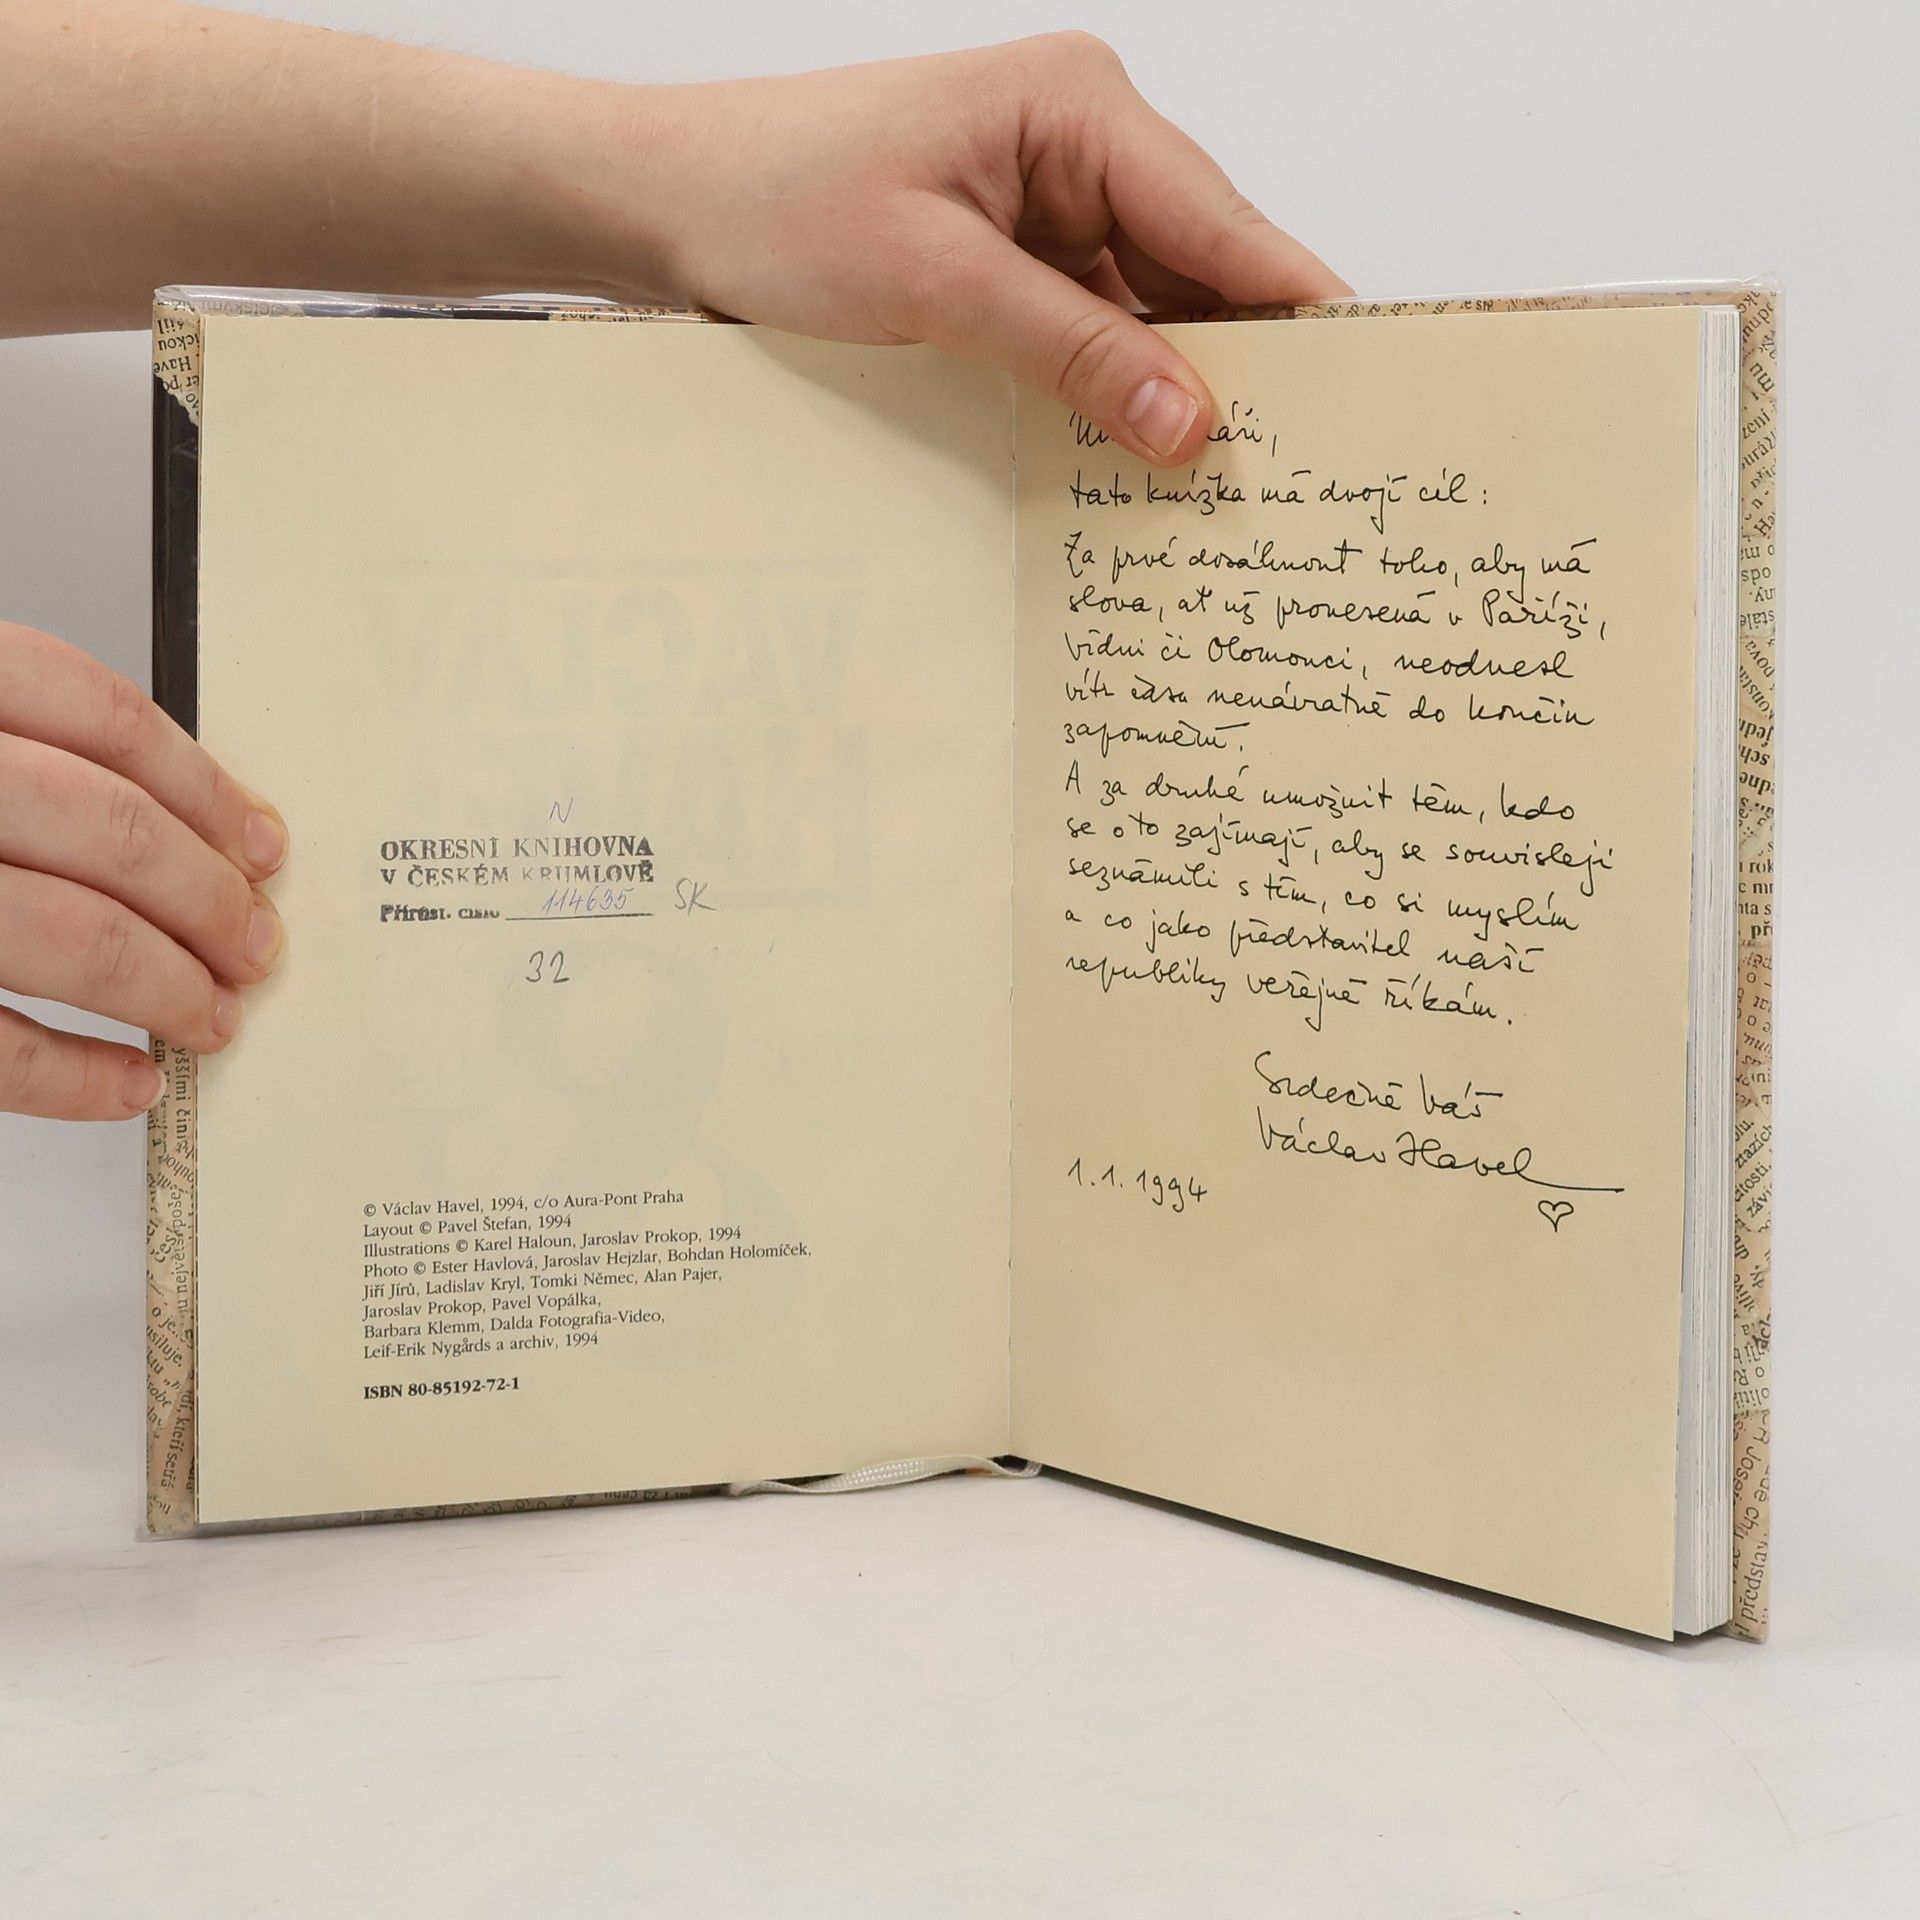 N
OKRESNÍ KNIHOVNA
V ČESKÉM KRUMLOVĚ
Přírůst. číslo 114635 SK
32
© Václav Havel, 1994, c/o Aura-Pont Praha
Layout © Pavel Štefan, 1994
Illustrations © Karel Haloun, Jaroslav Prokop, 1994
Photo © Ester Havlová, Jaroslav Hejzlar, Bohdan Holomíček,
Jiří Jírů, Ladislav Kryl, Tomki Němec, Alan Pajer,
Jaroslav Prokop, Pavel Vopálka,
Barbara Klemm, Dalda Fotografia-Video,
Leif-Erik Nygårds a archiv, 1994
ISBN 80-85192-72-1
tato knížka má dvojí cíl:
Za prvé dosáhnout toho, aby má
slova, ať už pronesená v Paříži,
Vídni či Olomouci, neodnesl
vítr času nenávratně do končin
zapomnění.
A za druhé umožnit těm, kdo
se o to zajímají, aby se souvisleji
seznámili s tím, co si myslím
a co jako představitel naší
republiky veřejně říkám.
Srdečně Váš
Václav Havel
1.1.1994